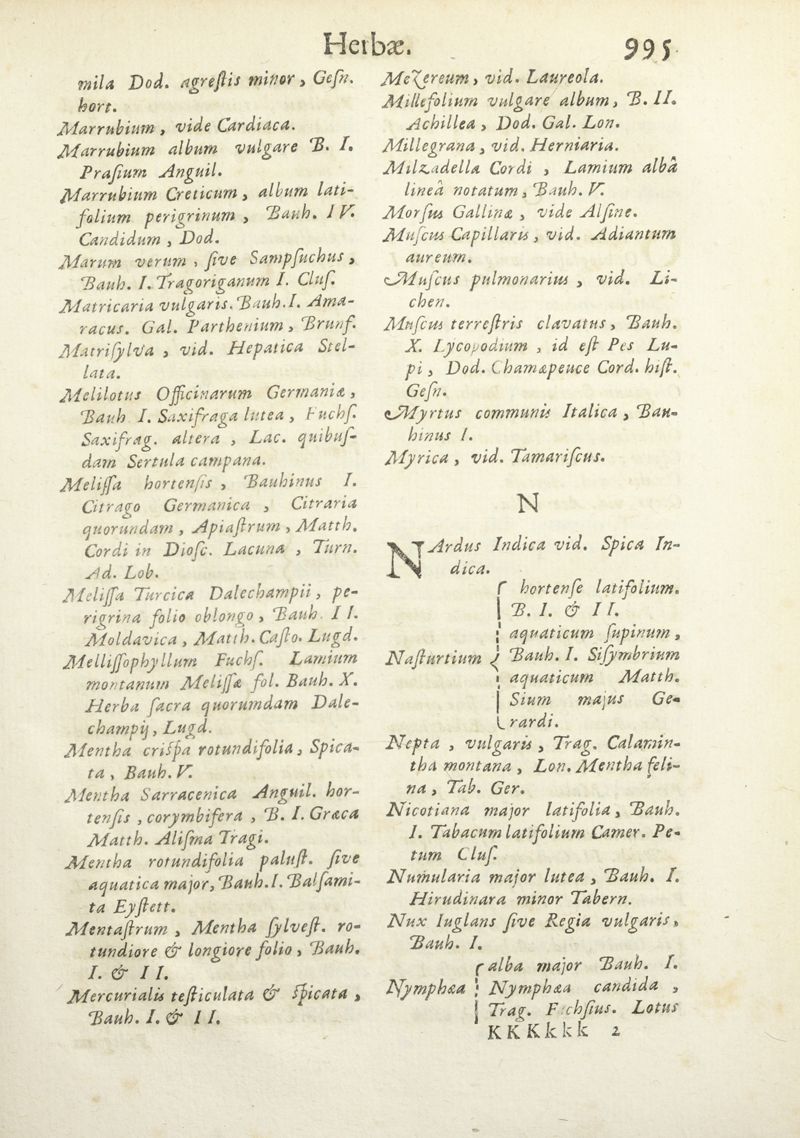 Herbæ. 995
mila Dod. agreſtis minor, Geſn.
hort.
Marrubium, vide Cardiaca.
Marrubium album vulgare B. I.
Praſium Anguil.
Marrubium Creticum, album lati-
folium perigrinum, Bauh. IV.
Candidum, Dod.
Marum verum, ſive Sampſuchus,
Bauh. I. Tragoriganum I. Cluſ.
Matricaria vulgaris. Bauh. I. Ama-
racus. Gal. Parthenium, Brunf.
Matriſylva, vid. Hepatica Stel-
lata.
Melilotus Officinarum Germaniæ,
Bauh I. Saxifraga lutea, Fuchſ.
Saxifrag. altera, Lac. quibuſ-
dam Sertula campana.
Meliſſa hortenſis, Bauhinus I.
Citrago Germanica, Citraria
quorundam, Apiaſtrum, Matth.
Cordi in Dioſc. Lacuna, Turn.
Ad. Lob.
Meliſſa Turcica Dalechampii, pe-
rigrina folio oblongo, Bauh. II.
Moldavica, Matth. Caſto. Lugd.
Melliſſophyllum Fuchſ. Lamium
montanum Meliſſæ fol. Bauh. X.
Herba ſacra quorumdam Dale-
champij, Lugd.
Mentha criſpa rotundifolia, Spica-
ta, Bauh. V.
Mentha Sarracenica Anguil. hor-
tenſis, corymbifera, B. I. Græca
Matth. Aliſma Tragi.
Mentha rotundifolia paluſt. ſive
aquatica major, Bauh. I. Balſami-
ta Eyſtett.
Mentaſtrum, Mentha ſylveſt. ro-
tundiore & longiore folio, Bauh.
I. & II.
Mercurialis teſticulata & ſpicata,
Bauh. I. & II.
Mezereum, vid. Laureola.
Millefolium vulgare album, B. II.
Achillea, Dod. Gal. Lon.
Millegrana, vid. Herniaria.
Milzadella Cordi, Lamium albâ
lineâ notatum, Bauh. V.
Morſus Gallinæ, vide Alſine.
Muſcus Capillaris, vid. Adiantum
aureum.
Muſcus pulmonarius, vid. Li-
chen.
Muſcus terreſtris clavatus, Bauh.
X. Lycopodium, id eſt Pes Lu-
pi, Dod. Chamæpeuce Cord. hiſt.
Geſn.
Myrtus communis Italica, Bau-
hinus I.
Myrica, vid. Tamariſcus.
N
NArdus Indica vid. Spica In-
dica.
hortenſe latifolium.
B. I. & II.
aquaticum ſupinum,
Naſturtium { Bauh. I. Siſymbrium
aquaticum Matth.
Sium majus Ge-
rardi.
Nepta, vulgaris, Trag. Calamin-
tha montana, Lon. Mentha feli-
na, Tab. Ger.
Nicotiana major latifolia, Bauh.
I. Tabacum latifolium Camer. Pe-
tum Cluſ.
Numularia major lutea, Bauh. I.
Hirudinara minor Tabern.
Nux Iuglans ſive Regia vulgaris,
Bauh. I.
alba major Bauh. I.
Nymphæa Nymphæa candida,
Trag. Fuchſius. Lotus
KKKkkk 2